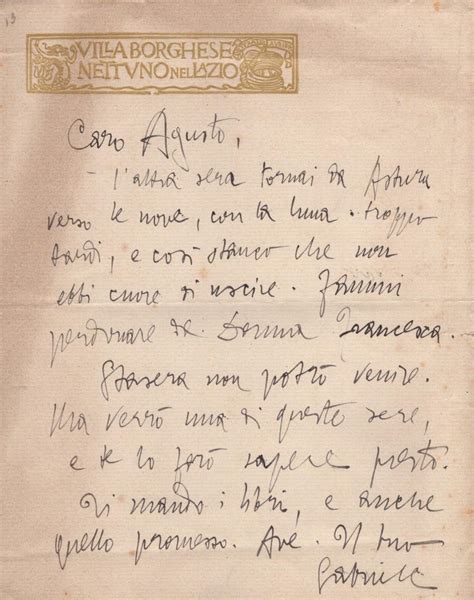 13
VILLA BORGHESE
NETTVNO NEL LAZIO
Caro Agusto,
l'altra sera tornai da Astura
verso le nove, con la luna. troppo
tardi, e così stanco che non
ebbi cuore di uscire. Fammi
perdonare da Donna Francesca.
Stasera non potrò venire.
Ma verrò una di queste sere,
e te lo farò sapere presto.
Ti mando i libri, e anche
quello promesso. Ave. Il tuo
Gabriele